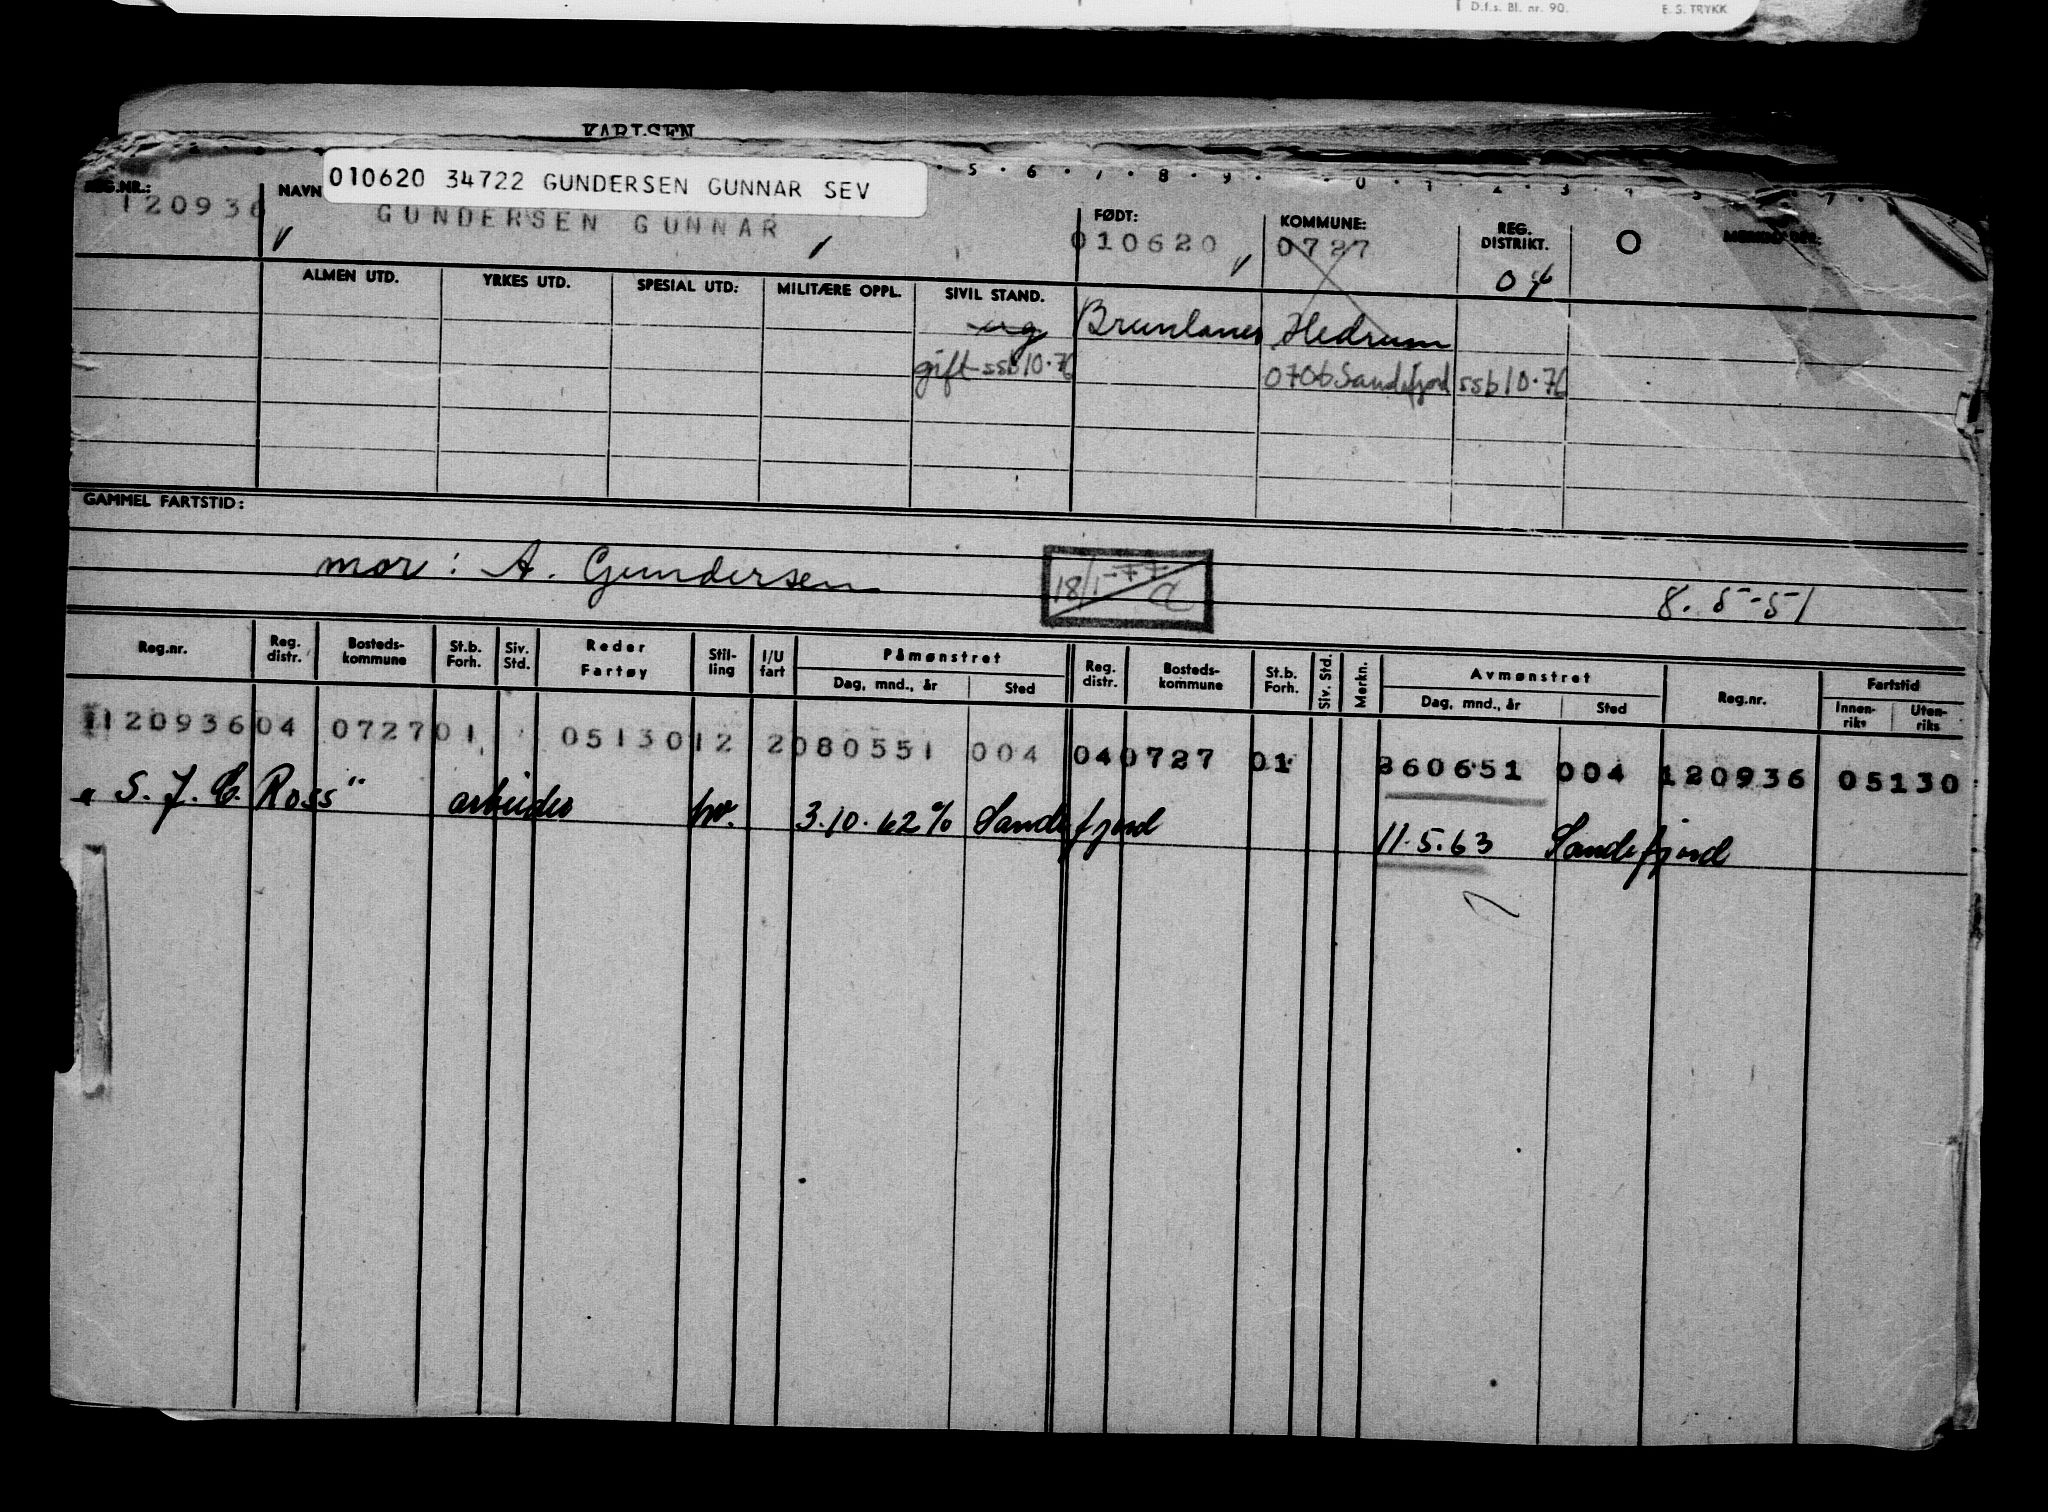 D.f.s. Bl. nr. 90. E. S. TRYKK
KARLSEN
5 . 6 . 7 . 8 . 9 . 0 . 1 . 2 . 3 . 4 . 5 . 7 .
010620 34722 GUNDERSEN GUNNAR SEV
REG.NR.: NAVN FØDT: KOMMUNE: REG. DISTRIKT. O MERKNADER:
120936 GUNDERSEN GUNNAR 010620 0727 04
ALMEN UTD. YRKES UTD. SPESIAL UTD: MILITÆRE OPPL. SIVIL STAND.
ug Brunlanes Hedrum
gift ssb 10.76 0706 Sandefjord ssb 10.76
GAMMEL FARTSTID:
mor: A. Gundersen 18/1-77 8.5-51
Reg.nr. Reg. distr. Bosteds-kommune St.b. Forh. Siv. Std. Reder Fartøy Stil-ling I/U fart Påmønstret Dag, mnd., år Sted Reg. distr. Bosteds-kommune St.b. Forh. Siv. Std. Merkn. Avmønstret Dag, mnd., år Sted Reg.nr. Fartstid Innen-riks Uten-riks
120936 04 0727 01 05130 12 2 080551 004 04 0727 01 260651 004 120936 05130
"S. J. E. Ross" arbeider hv. 3.10.62 % Sandefjord 11.5.63 Sandefjord